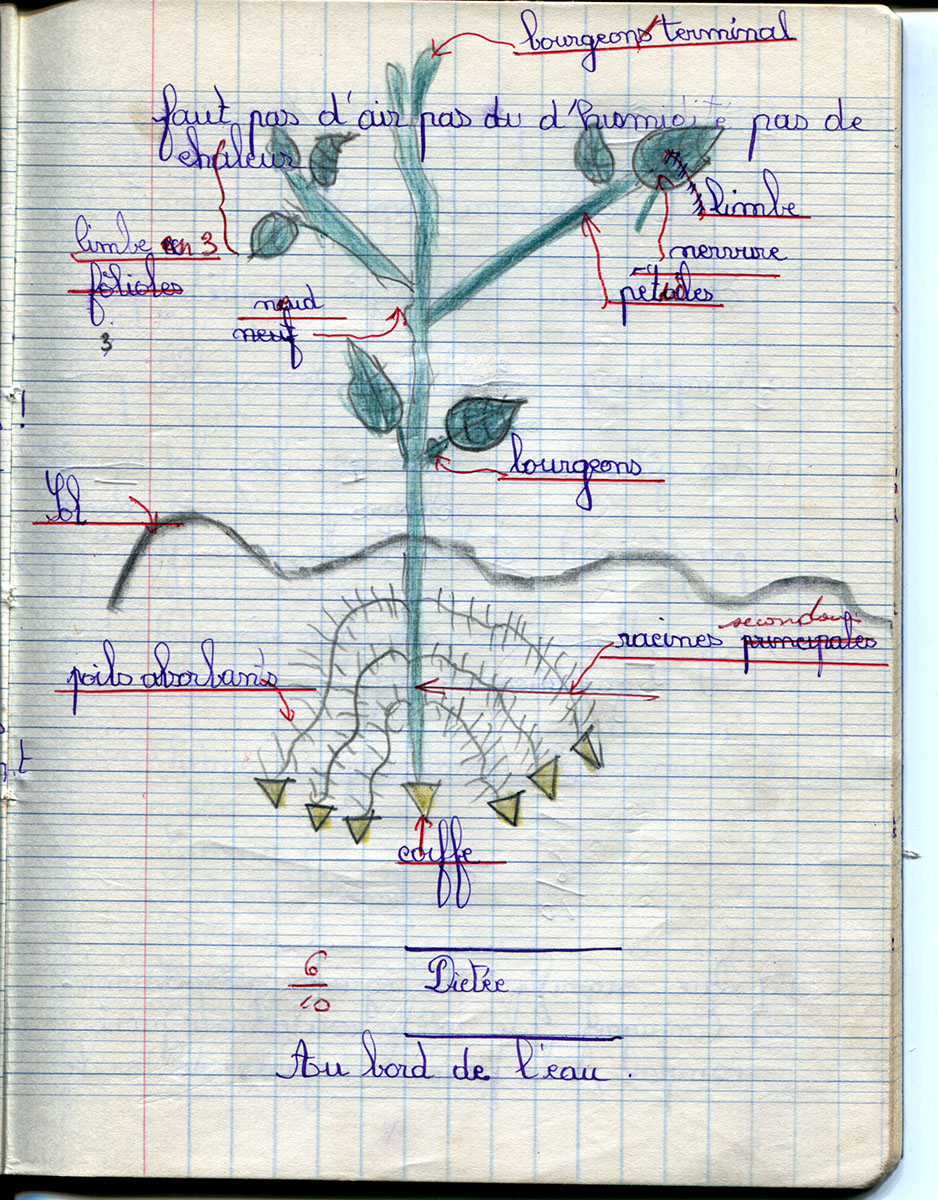 bourgeons terminal
faut pas d'air pas du d'humidité pas de
chaleur
limbe
limbe en 3
folioles
3
nervure
pétioles
nœud
neuf
bourgeons
Sol
racines principales
poils absorbants
coiffe
6
10
Dictée
Au bord de l'eau.